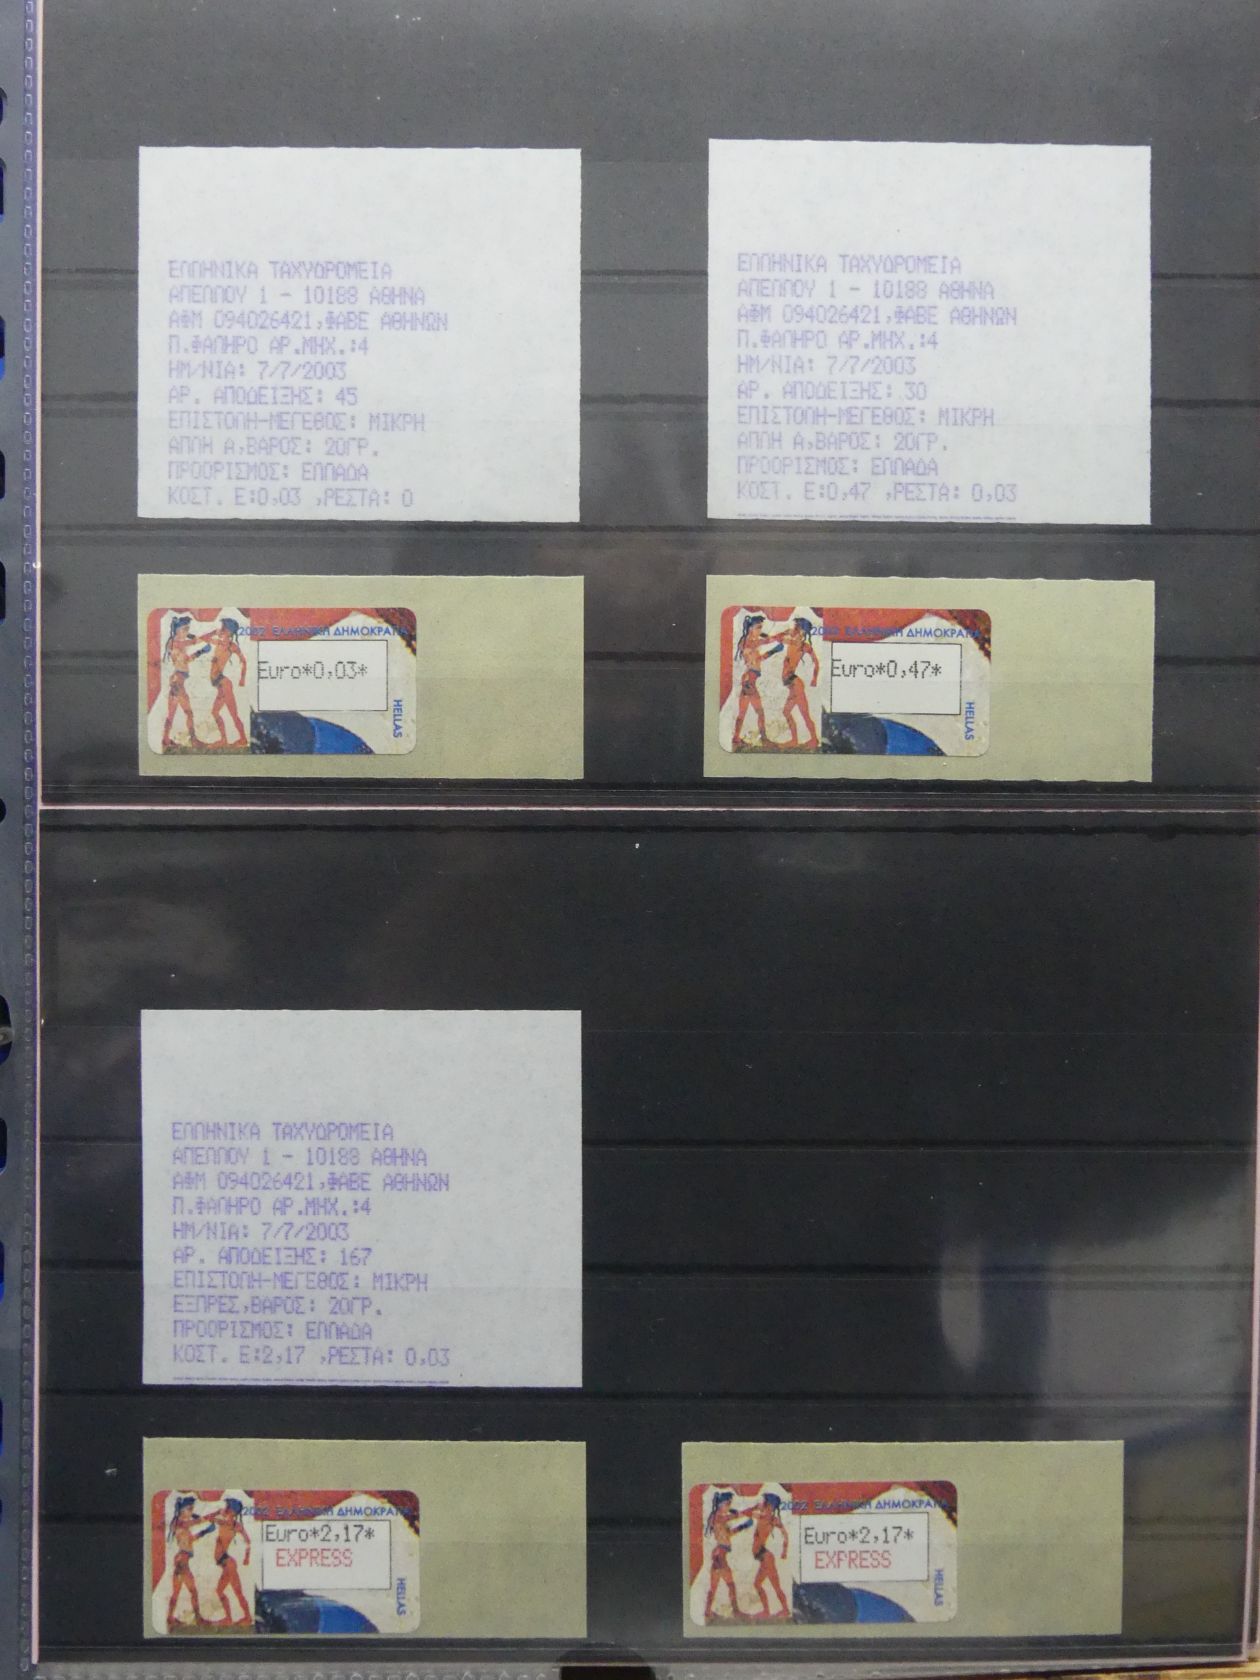 ΕΛΛΗΝΙΚΑ ΤΑΧΥΔΡΟΜΕΙΑ
ΑΠΕΛΛΟΥ 1 - 10188 ΑΘΗΝΑ
ΑΦΜ 094026421,ΦΑΒΕ ΑΘΗΝΩΝ
Π.ΦΑΛΗΡΟ ΑΡ.ΜΗΧ.:4
ΗΜ/ΝΙΑ: 7/7/2003
ΑΡ. ΑΠΟΔΕΙΞΗΣ: 45
ΕΠΙΣΤΟΛΗ-ΜΕΓΕΘΟΣ: ΜΙΚΡΗ
ΑΠΛΗ Α,ΒΑΡΟΣ: 20ΓΡ.
ΠΡΟΟΡΙΣΜΟΣ: ΕΛΛΑΔΑ
ΚΟΣΤ. Ε:0,03 ,ΡΕΣΤΑ: 0
ΕΛΛΗΝΙΚΑ ΤΑΧΥΔΡΟΜΕΙΑ
ΑΠΕΛΛΟΥ 1 - 10188 ΑΘΗΝΑ
ΑΦΜ 094026421,ΦΑΒΕ ΑΘΗΝΩΝ
Π.ΦΑΛΗΡΟ ΑΡ.ΜΗΧ.:4
ΗΜ/ΝΙΑ: 7/7/2003
ΑΡ. ΑΠΟΔΕΙΞΗΣ: 30
ΕΠΙΣΤΟΛΗ-ΜΕΓΕΘΟΣ: ΜΙΚΡΗ
ΑΠΛΗ Α,ΒΑΡΟΣ: 20ΓΡ.
ΠΡΟΟΡΙΣΜΟΣ: ΕΛΛΑΔΑ
ΚΟΣΤ. Ε:0,47 ,ΡΕΣΤΑ: 0,03
2002 ΕΛΛΗΝΙΚΗ ΔΗΜΟΚΡΑΤΙΑ
Euro*0,03*
HELLAS
2002 ΕΛΛΗΝΙΚΗ ΔΗΜΟΚΡΑΤΙΑ
Euro*0,47*
HELLAS
ΕΛΛΗΝΙΚΑ ΤΑΧΥΔΡΟΜΕΙΑ
ΑΠΕΛΛΟΥ 1 - 10188 ΑΘΗΝΑ
ΑΦΜ 094026421,ΦΑΒΕ ΑΘΗΝΩΝ
Π.ΦΑΛΗΡΟ ΑΡ.ΜΗΧ.:4
ΗΜ/ΝΙΑ: 7/7/2003
ΑΡ. ΑΠΟΔΕΙΞΗΣ: 167
ΕΠΙΣΤΟΛΗ-ΜΕΓΕΘΟΣ: ΜΙΚΡΗ
ΕΞΠΡΕΣ,ΒΑΡΟΣ: 20ΓΡ.
ΠΡΟΟΡΙΣΜΟΣ: ΕΛΛΑΔΑ
ΚΟΣΤ. Ε:2,17 ,ΡΕΣΤΑ: 0,03
2002 ΕΛΛΗΝΙΚΗ ΔΗΜΟΚΡΑΤΙΑ
Euro*2,17*
EXPRESS
HELLAS
2002 ΕΛΛΗΝΙΚΗ ΔΗΜΟΚΡΑΤΙΑ
Euro*2,17*
EXPRESS
HELLAS